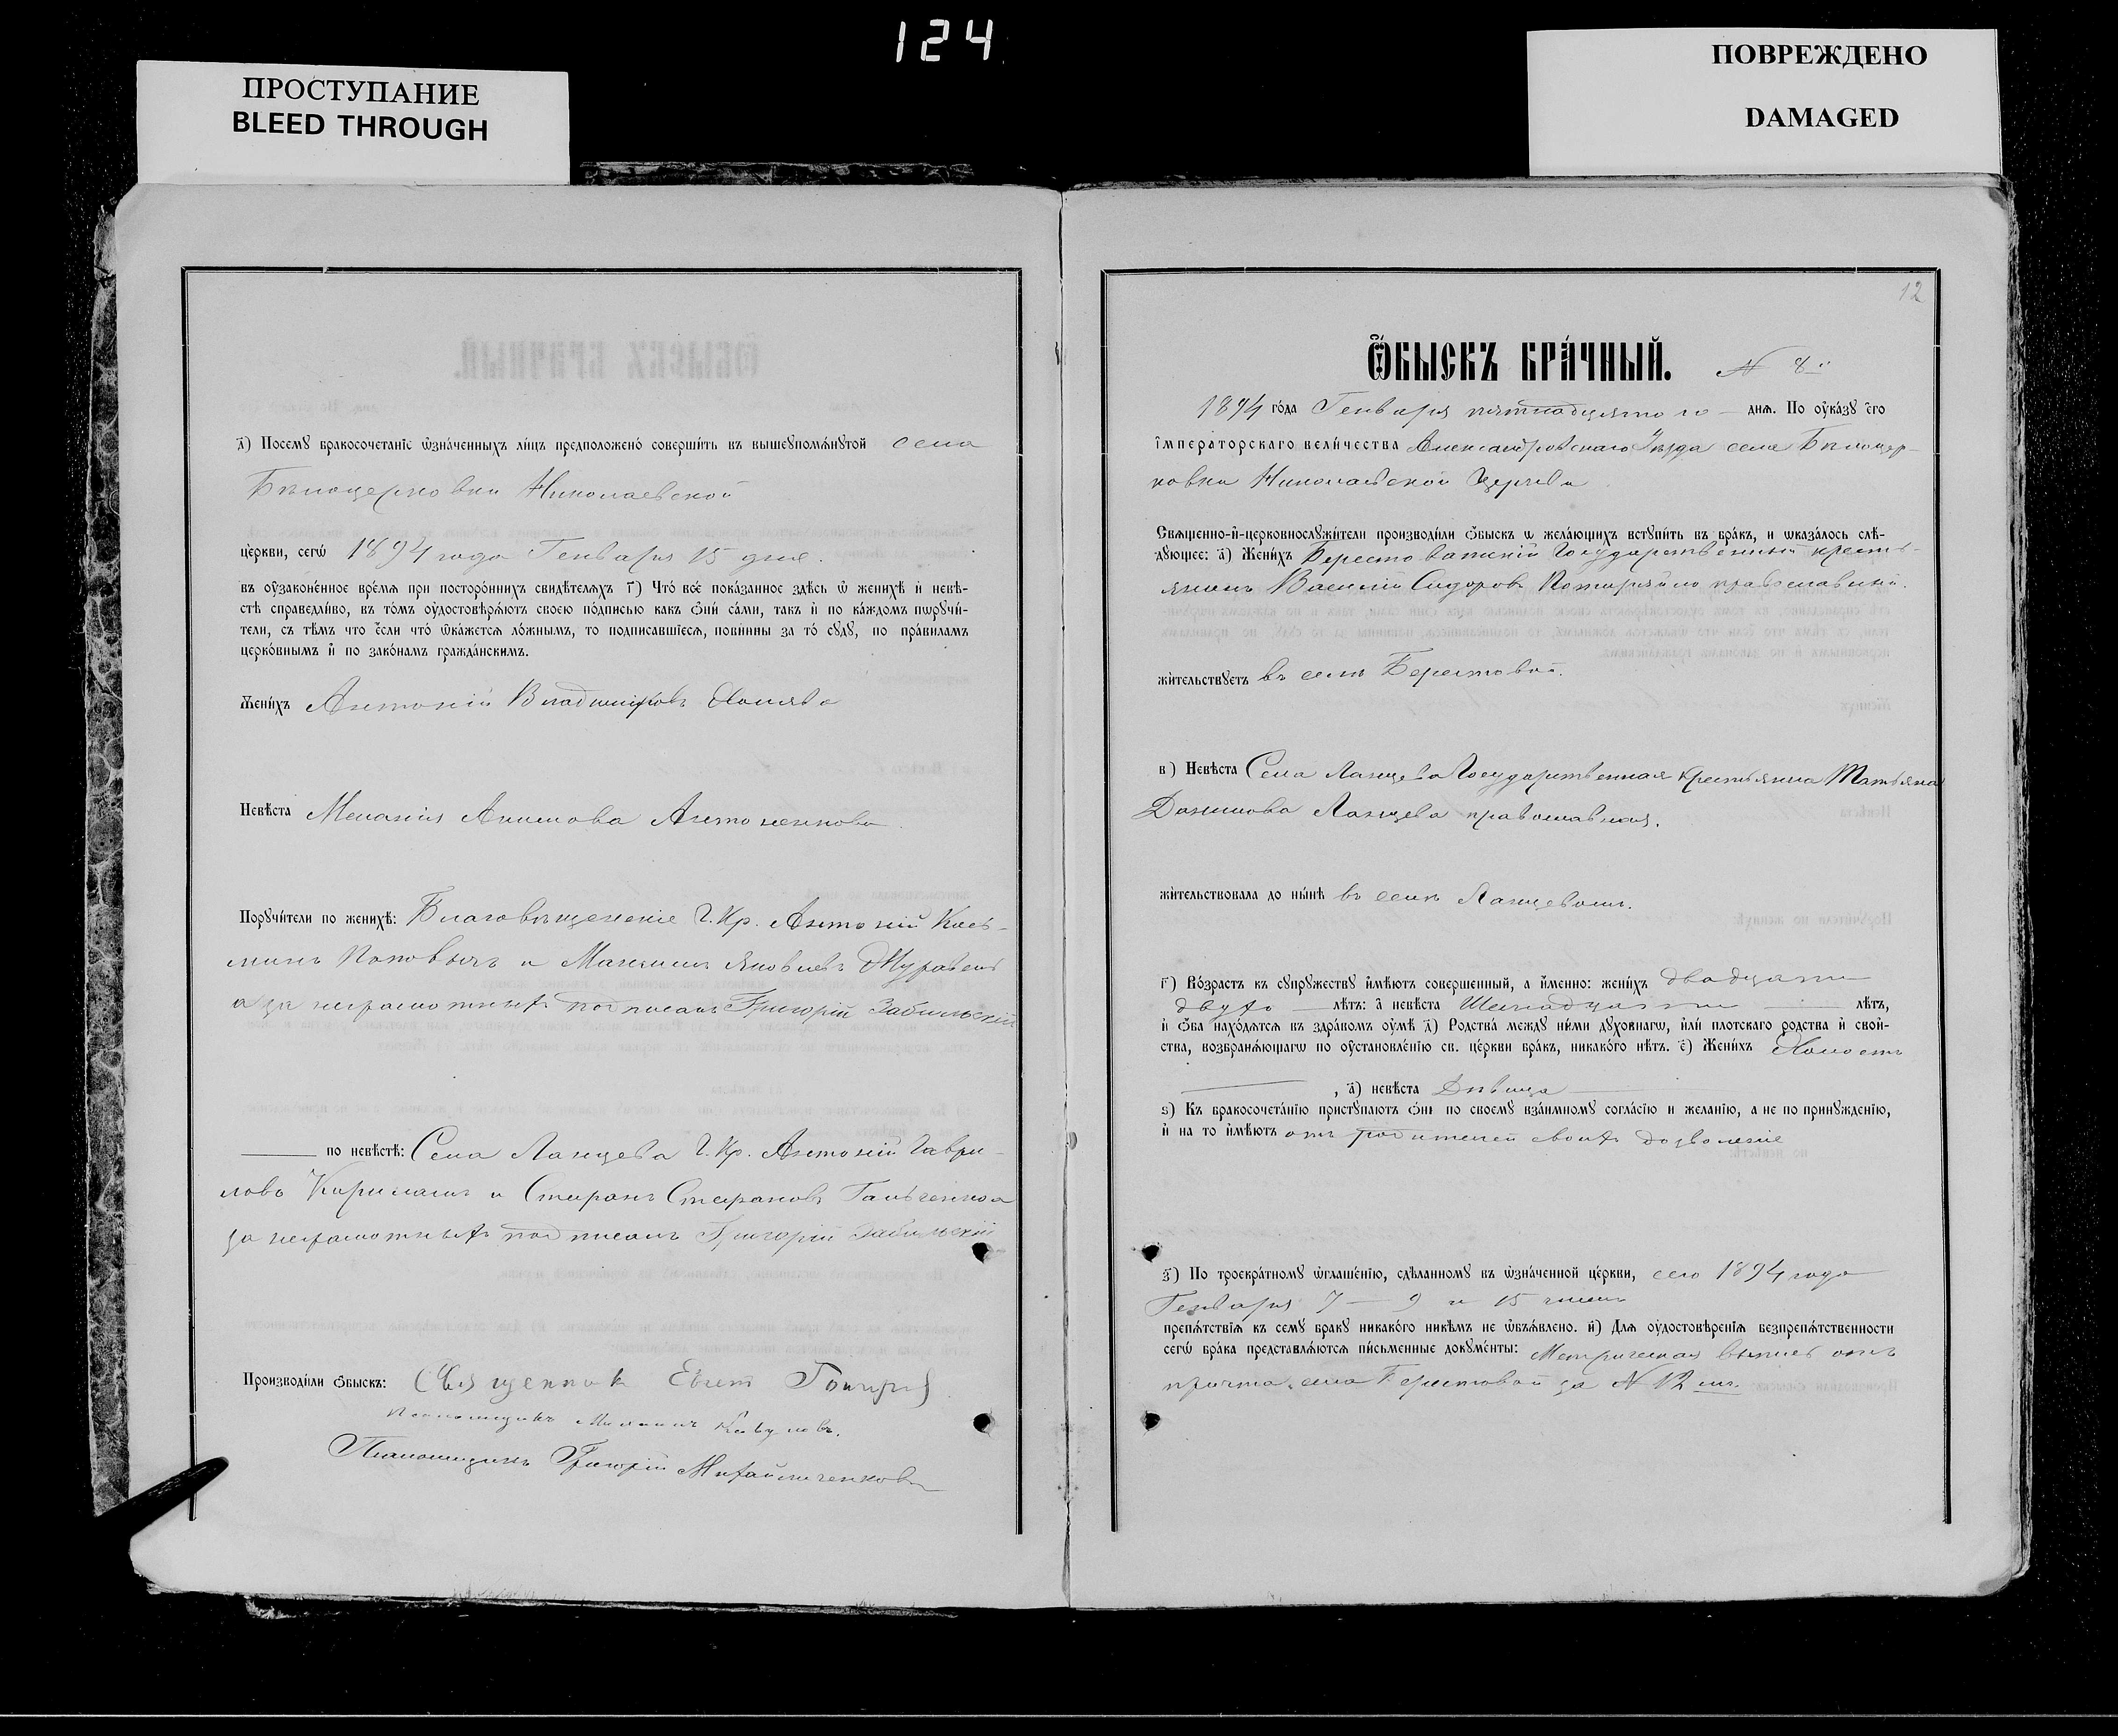 124
ПРОСТУПАНИЕ
BLEED THROUGH
ПОВРЕЖДЕНО
DAMAGED
д҃) Посемꙋ бракосочетанїе ѡзначенныхъ лицъ предположено совершить въ вышеꙋпомѧнꙋтой села
Бѣлоцерковки Николаевской
церкви, сегѡ 1894 года Генваря 15 дня.
въ оузаконенное времѧ при постороннихъ свидѣтелѧхъ г҃) Что все показанное здѣсь ѡ женихѣ и невѣ-
стѣ справедливо, въ томъ оудостовѣрѧютъ своею подписью какъ ѻни сами, такъ и по каждомъ порꙋчи-
тели, съ тѣмъ что если что ѡкажетсѧ ложнымъ, то подписавшїесѧ, повинны за то сꙋдꙋ, по правиламъ
церковнымъ и по законамъ гражданскимъ.
Женихъ Антоній Владиміровъ Холява
Невѣста Меланія Акимова Антоненкова
Порꙋчители по женихѣ: Благовѣщенскіе Г. Кр. Антоній Кось-
минъ Поповичъ и Максимъ Яковлевъ Журавель
а за неграмотныхъ подписалъ Григорій Забильскій
по невѣстѣ: Села Ланцева Г. Кр. Антоній Гаври-
ловъ и Стефанъ Стефановъ Гальченко а
за неграмотныхъ подписалъ Григорій Забильскій
Производили ѻбыскъ: Священник Евген
Псаломщикъ
Псаломщикъ Григорій Михайличенковъ
12
Ѻбыскъ брачный. N 8й
1894 года Генваря пятнадцятого дня. По оуказꙋ его
императорскаго величества Александровскаго Уѣзда села Бѣлоцер-
ковки Николаевской Церкви
Свѧщенно-и-церковнослꙋжители производили ѻбыскъ ѡ желающихъ встꙋпить въ бракъ, и ѡказалось слѣ-
дꙋющее: а҃) Женихъ Берестоватскій Государственный кресть-
янинъ Василій Сидоровъ православный.
жительствꙋетъ въ селѣ Берестовой.
в) Невѣста Села Ланцева Государственная крестьянка Татьяна
Данилова Ланцева православная.
жительствовала до нынѣ въ селѣ Ланцевомъ.
г҃) Возрастъ къ сꙋпрꙋжествꙋ имѣютъ совершенный, а именно: женихъ двадцати
двухъ лѣтъ: а невѣста Шестнадцати лѣтъ,
и ѻба находятся въ здравомъ оумѣ д҃) Родства междꙋ ними дꙋховнагѡ, или плотскаго родства и свой-
ства, возбранѧющагѡ по оустановленїю св. церкви бракъ, никакого нѣтъ. е҃) Женихъ Холостъ
, а҃) невѣста Дѣвица
ѕ) Къ бракосочетанїю пристꙋпаютъ ѻни по своемꙋ взаимномꙋ согласїю и желанїю, а не по принꙋжденїю,
и на то имѣютъ отъ родителей своихъ дозволеніе
з҃) По троекратномꙋ ѡглашенїю, сдѣланномꙋ въ ѡзначенной церкви, сего 1894 года
Генваря 7 — 9 и 15 чиселъ
препѧтствїѧ къ семꙋ бракꙋ никакого никѣмъ не ѡбъѧвлено. и҃) Длѧ оудостовѣренїѧ безпрепѧтственности
сегѡ брака представлѧютсѧ письменные докꙋменты: Метрическая выпись отъ
причта села Берестовой за N 12 мъ.